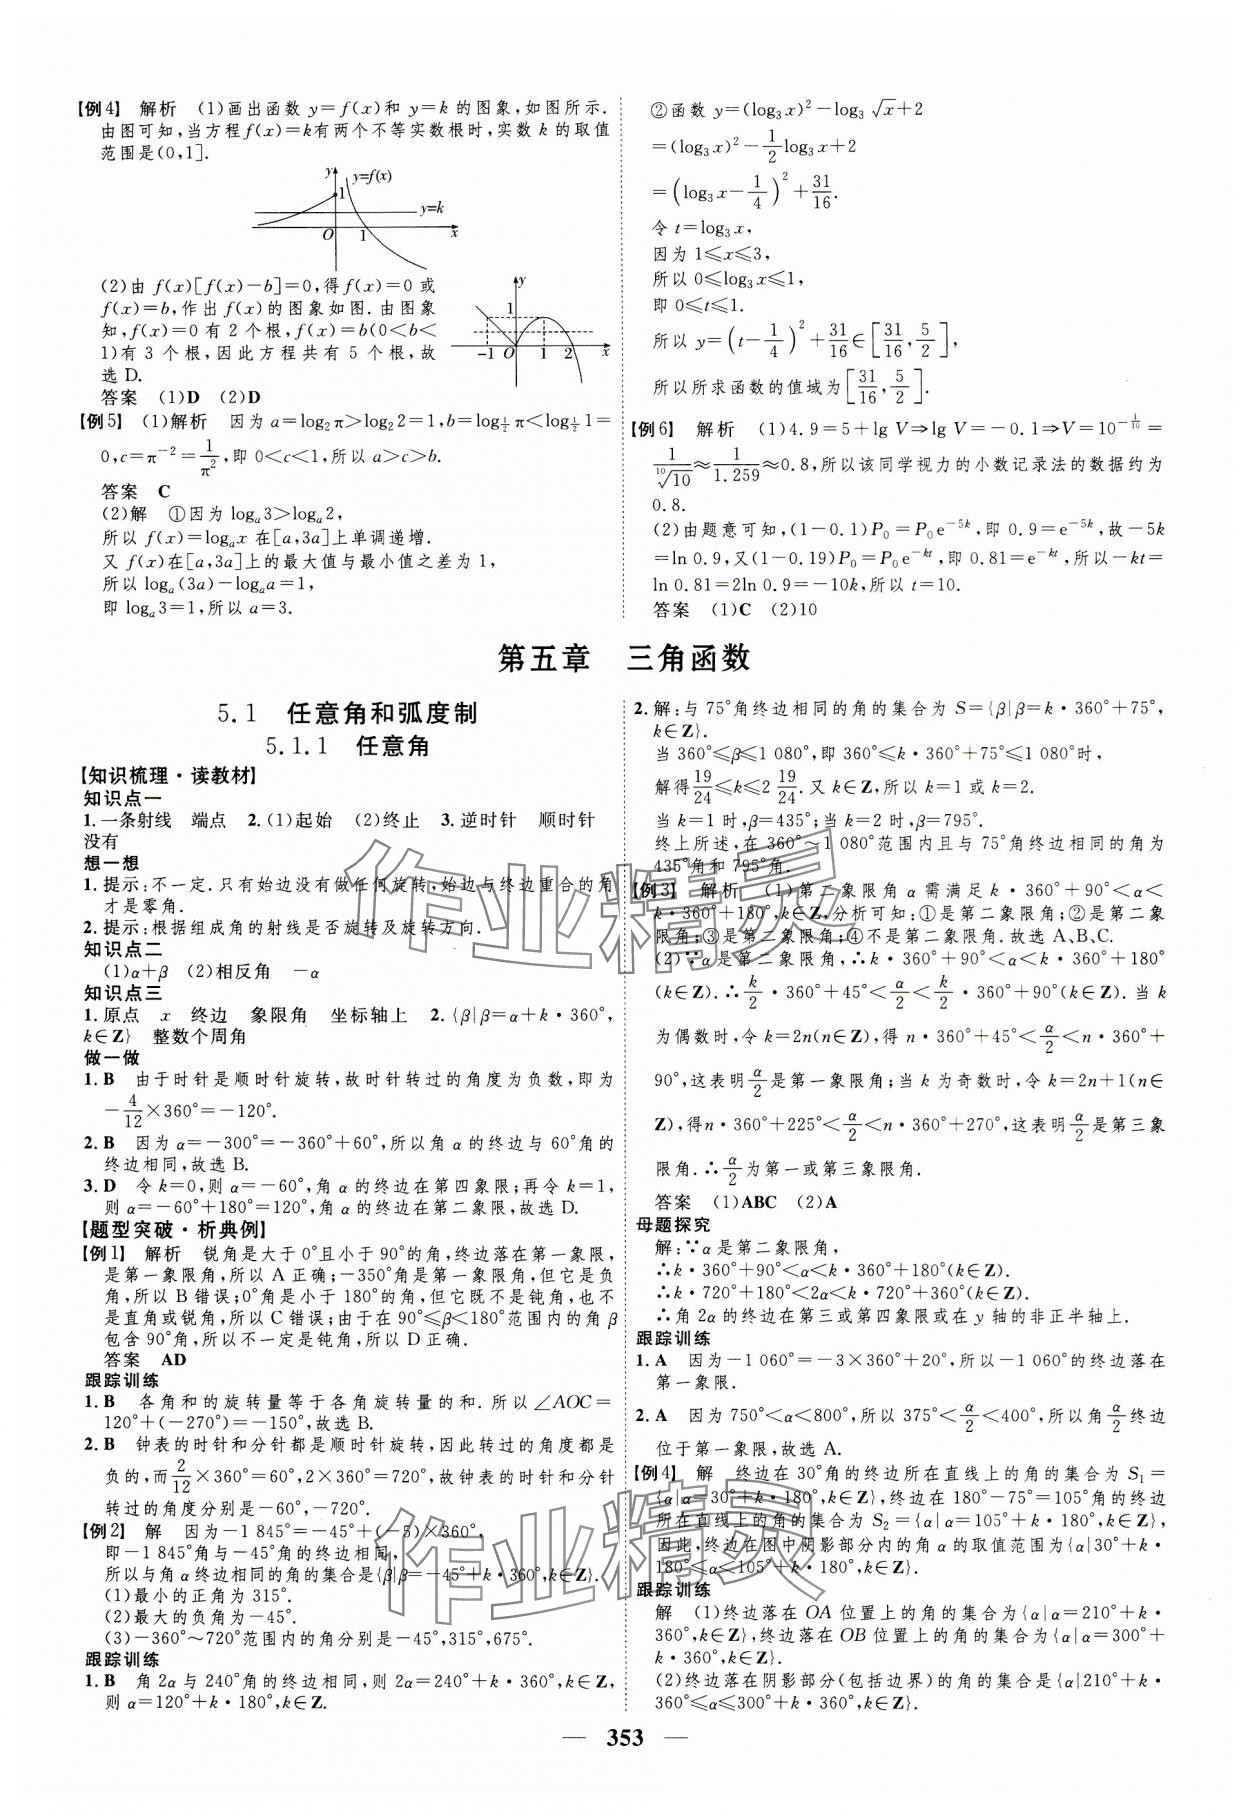 【例4】 解析 (1)画出函数 y=f(x)和 y=k 的图象,如图所示.
由图可知,当方程 f(x)=k有两个不等实数根时,实数 k 的取值
范围是(0,1].
y
y=f(x)
1
y=k
O 1 x
(2)由 f(x)[f(x)-b]=0,得f(x)=0 或
f(x)=b,作出 f(x)的图象如图.由图象
知,f(x)=0 有 2 个根,f(x)=b(0<b<
1)有 3 个根,因此方程共有 5 个根,故
选 D.
y
1
-1 O 1 2 x
答案 (1)D (2)D
【例5】 (1)解析 因为 a=log₂π>log₂2=1,b=log_{1/2}π<log_{1/2}1=
0,c=π⁻²=1/π²,即 0<c<1,所以 a>c>b.
答案 C
(2)解 ①因为 logₐ3>logₐ2,
所以 f(x)=logₐx 在[a,3a]上单调递增.
又 f(x)在[a,3a]上的最大值与最小值之差为 1,
所以 logₐ(3a)-logₐa=1,
即 logₐ3=1,所以 a=3.
②函数 y=(log₃x)²-log₃√x+2
=(log₃x)²-1/2 log₃x+2
=(log₃x-1/4)²+31/16.
令 t=log₃x,
因为 1≤x≤3,
所以 0≤log₃x≤1,
即 0≤t≤1.
所以 y=(t-1/4)²+31/16∈[31/16,5/2],
所以所求函数的值域为[31/16,5/2].
【例6】 解析 (1)4.9=5+lg V⇒lg V=-0.1⇒V=10^{-1/10}=
1/¹⁰√10≈1/1.259≈0.8,所以该同学视力的小数记录法的数据约为
0.8.
(2)由题意可知,(1-0.1)P₀=P₀e^{-5k},即 0.9=e^{-5k},故-5k
=ln 0.9,又(1-0.19)P₀=P₀e^{-kt},即 0.81=e^{-kt},所以-kt=
ln 0.81=2ln 0.9=-10k,所以 t=10.
答案 (1)C (2)10
第五章 三角函数
5.1 任意角和弧度制
5.1.1 任意角
【知识梳理·读教材】
知识点一
1.一条射线 端点 2.(1)起始 (2)终止 3.逆时针 顺时针
没有
想一想
1.提示:不一定.只有始边没有做任何旋转,始边与终边重合的角
才是零角.
2.提示:根据组成角的射线是否旋转及旋转方向.
知识点二
(1)α+β (2)相反角 -α
知识点三
1.原点 x 终边 象限角 坐标轴上 2.{β|β=α+k·360°,
k∈Z} 整数个周角
做一做
1.B 由于时针是顺时针旋转,故时针转过的角度为负数,即为
-4/12×360°=-120°.
2.B 因为 α=-300°=-360°+60°,所以角 α 的终边与 60°角的
终边相同,故选 B.
3.D 令 k=0,则 α=-60°,角 α 的终边在第四象限;再令 k=1,
则 α=-60°+180°=120°,角 α 的终边在第二象限,故选 D.
【题型突破·析典例】
【例1】 解析 锐角是大于 0°且小于 90°的角,终边落在第一象限,
是第一象限角,所以 A 正确;-350°角是第一象限角,但它是负
角,所以 B 错误;0°角是小于 180°的角,但它既不是钝角,也不
是直角或锐角,所以 C 错误;由于在 90°≤β<180°范围内的角 β
包含 90°角,所以不一定是钝角,所以 D 正确.
答案 AD
跟踪训练
1.B 各角和的旋转量等于各角旋转量的和.所以∠AOC=
120°+(-270°)=-150°,故选 B.
2.B 钟表的时针和分针都是顺时针旋转,因此转过的角度都是
负的,而2/12×360°=60°,2×360°=720°,故钟表的时针和分针
转过的角度分别是-60°,-720°.
【例2】 解 因为-1 845°=-45°+(-5)×360°,
即-1 845°角与-45°角的终边相同,
所以与角 α 终边相同的角的集合是{β|β=-45°+k·360°,k∈Z}.
(1)最小的正角为 315°.
(2)最大的负角为-45°.
(3)-360°~720°范围内的角分别是-45°,315°,675°.
跟踪训练
1.B 角 2α 与 240°角的终边相同,则 2α=240°+k·360°,k∈Z,
则 α=120°+k·180°,k∈Z.
2.解:与 75°角终边相同的角的集合为 S={β|β=k·360°+75°,
k∈Z}.
当 360°≤β≤1 080°,即 360°≤k·360°+75°≤1 080°时,
解得19/24≤k≤2 19/24.又 k∈Z,所以 k=1 或 k=2.
当 k=1 时,β=435°;当 k=2 时,β=795°.
终上所述,在 360°~1 080°范围内且与 75°角终边相同的角为
435°角和 795°角.
【例3】 解析 (1)第二象限角 α 需满足 k·360°+90°<α<
k·360°+180°,k∈Z,分析可知:①是第二象限角;②是第二象
限角;③是第二象限角;④不是第二象限角.故选 A、B、C.
(2)∵α是第二象限角,∴k·360°+90°<α<k·360°+180°
(k∈Z).∴k/2·360°+45°<α/2<k/2·360°+90°(k∈Z).当 k
为偶数时,令 k=2n(n∈Z),得 n·360°+45°<α/2<n·360°+
90°,这表明α/2是第一象限角;当 k 为奇数时,令 k=2n+1(n∈
Z),得n·360°+225°<α/2<n·360°+270°,这表明α/2是第三象
限角.∴α/2为第一或第三象限角.
答案 (1)ABC (2)A
母题探究
解:∵α是第二象限角,
∴k·360°+90°<α<k·360°+180°(k∈Z).
∴k·720°+180°<2α<k·720°+360°(k∈Z).
∴角 2α 的终边在第三或第四象限或在 y 轴的非正半轴上.
跟踪训练
1.A 因为-1 060°=-3×360°+20°,所以-1 060°的终边落在
第一象限.
2.A 因为 750°<α<800°,所以 375°<α/2<400°,所以角α/2终边
位于第一象限,故选 A.
【例4】 解 终边在 30°角的终边所在直线上的角的集合为 S₁=
{α|α=30°+k·180°,k∈Z},终边在 180°-75°=105°角的终边
所在直线上的角的集合为 S₂={α|α=105°+k·180°,k∈Z},
因此,终边在图中阴影部分内的角 α 的取值范围为{α|30°+k·
180°≤α≤105°+k·180°,k∈Z}.
跟踪训练
解 (1)终边落在 OA 位置上的角的集合为{α|α=210°+k·
360°,k∈Z},终边落在 OB 位置上的角的集合为{α|α=300°+
k·360°,k∈Z}.
(2)终边落在阴影部分(包括边界)的角的集合是{α|210°+k·
360°≤α≤300°+k·360°,k∈Z}.
— 353 —
作业精灵
作业精灵